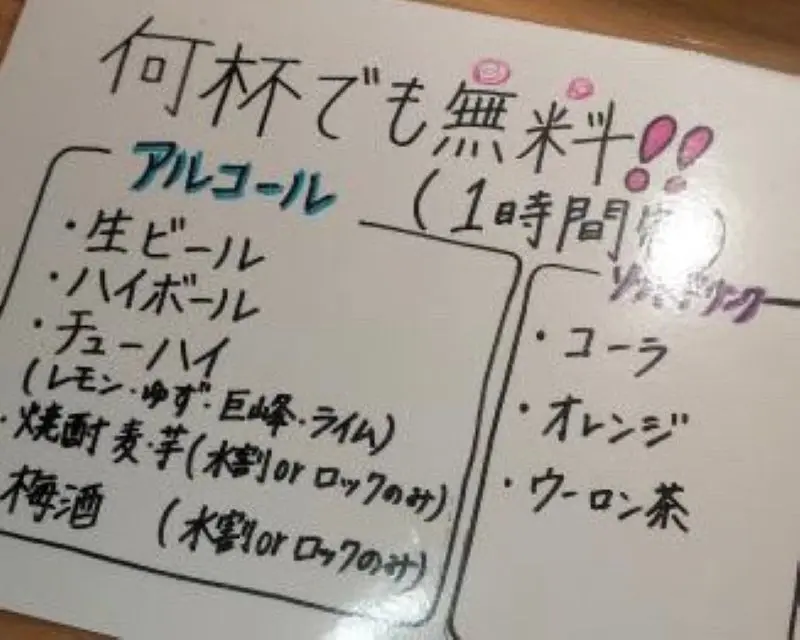 何杯でも無料!!
(1時間制)
アルコール
・生ビール
・ハイボール
・チューハイ
(レモン・ゆず・巨峰・ライム)
・焼酎 麦・芋(水割orロックのみ)
梅酒 (水割orロックのみ)
ソフトドリンク
・コーラ
・オレンジ
・ウーロン茶